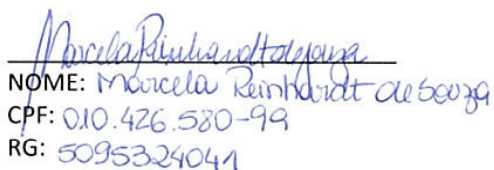 Marcela Reinhardt de Souza
NOME: Marcela Reinhardt de Souza
CPF: 010.426.580-99
RG: 5095324041